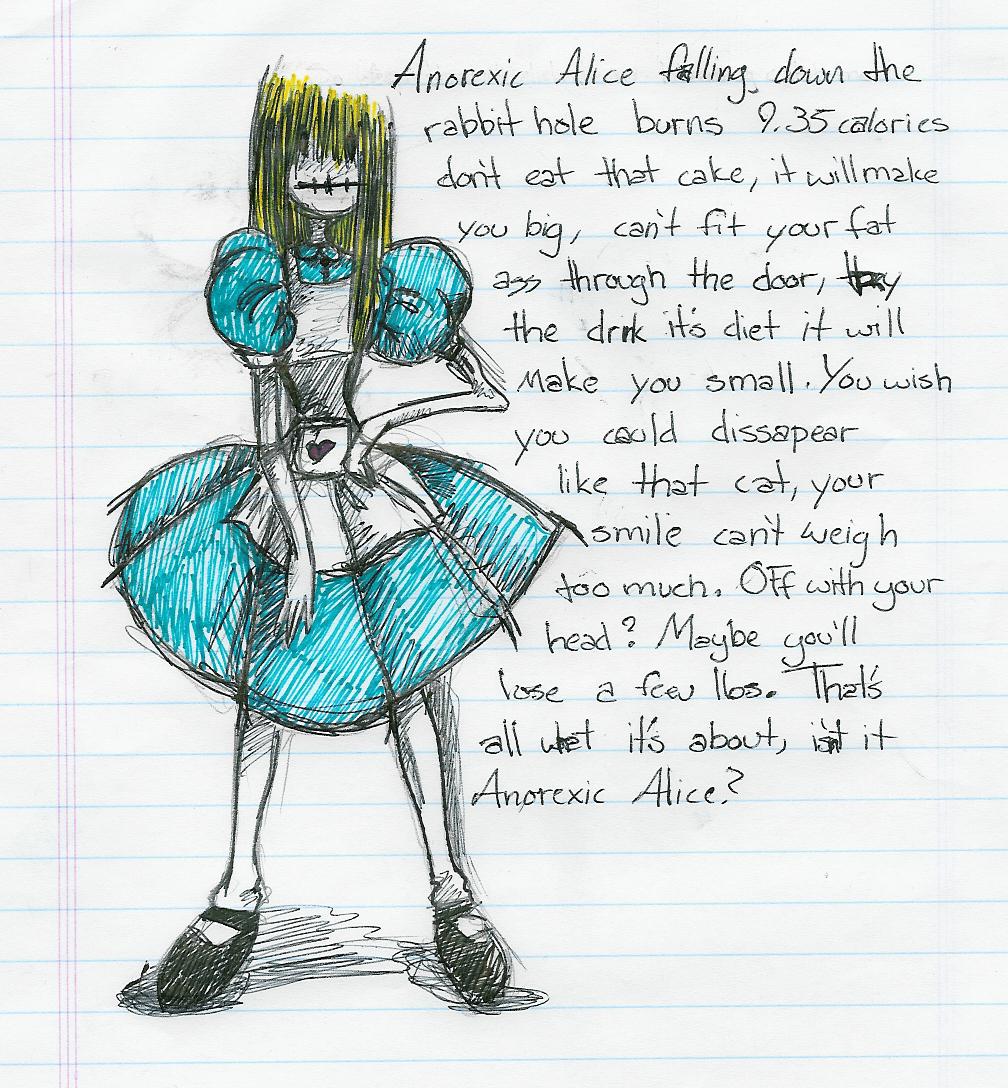 Anorexic Alice falling down the
rabbit hole burns 9.35 calories
don't eat that cake, it will make
you big, can't fit your fat
ass through the door, try
the drnk it's diet it will
Make you small. You wish
you could dissapear
like that cat, your
smile can't weigh
too much. Off with your
head? Maybe you'll
lose a few lbs. That's
all what it's about, isn't it
Anorexic Alice?